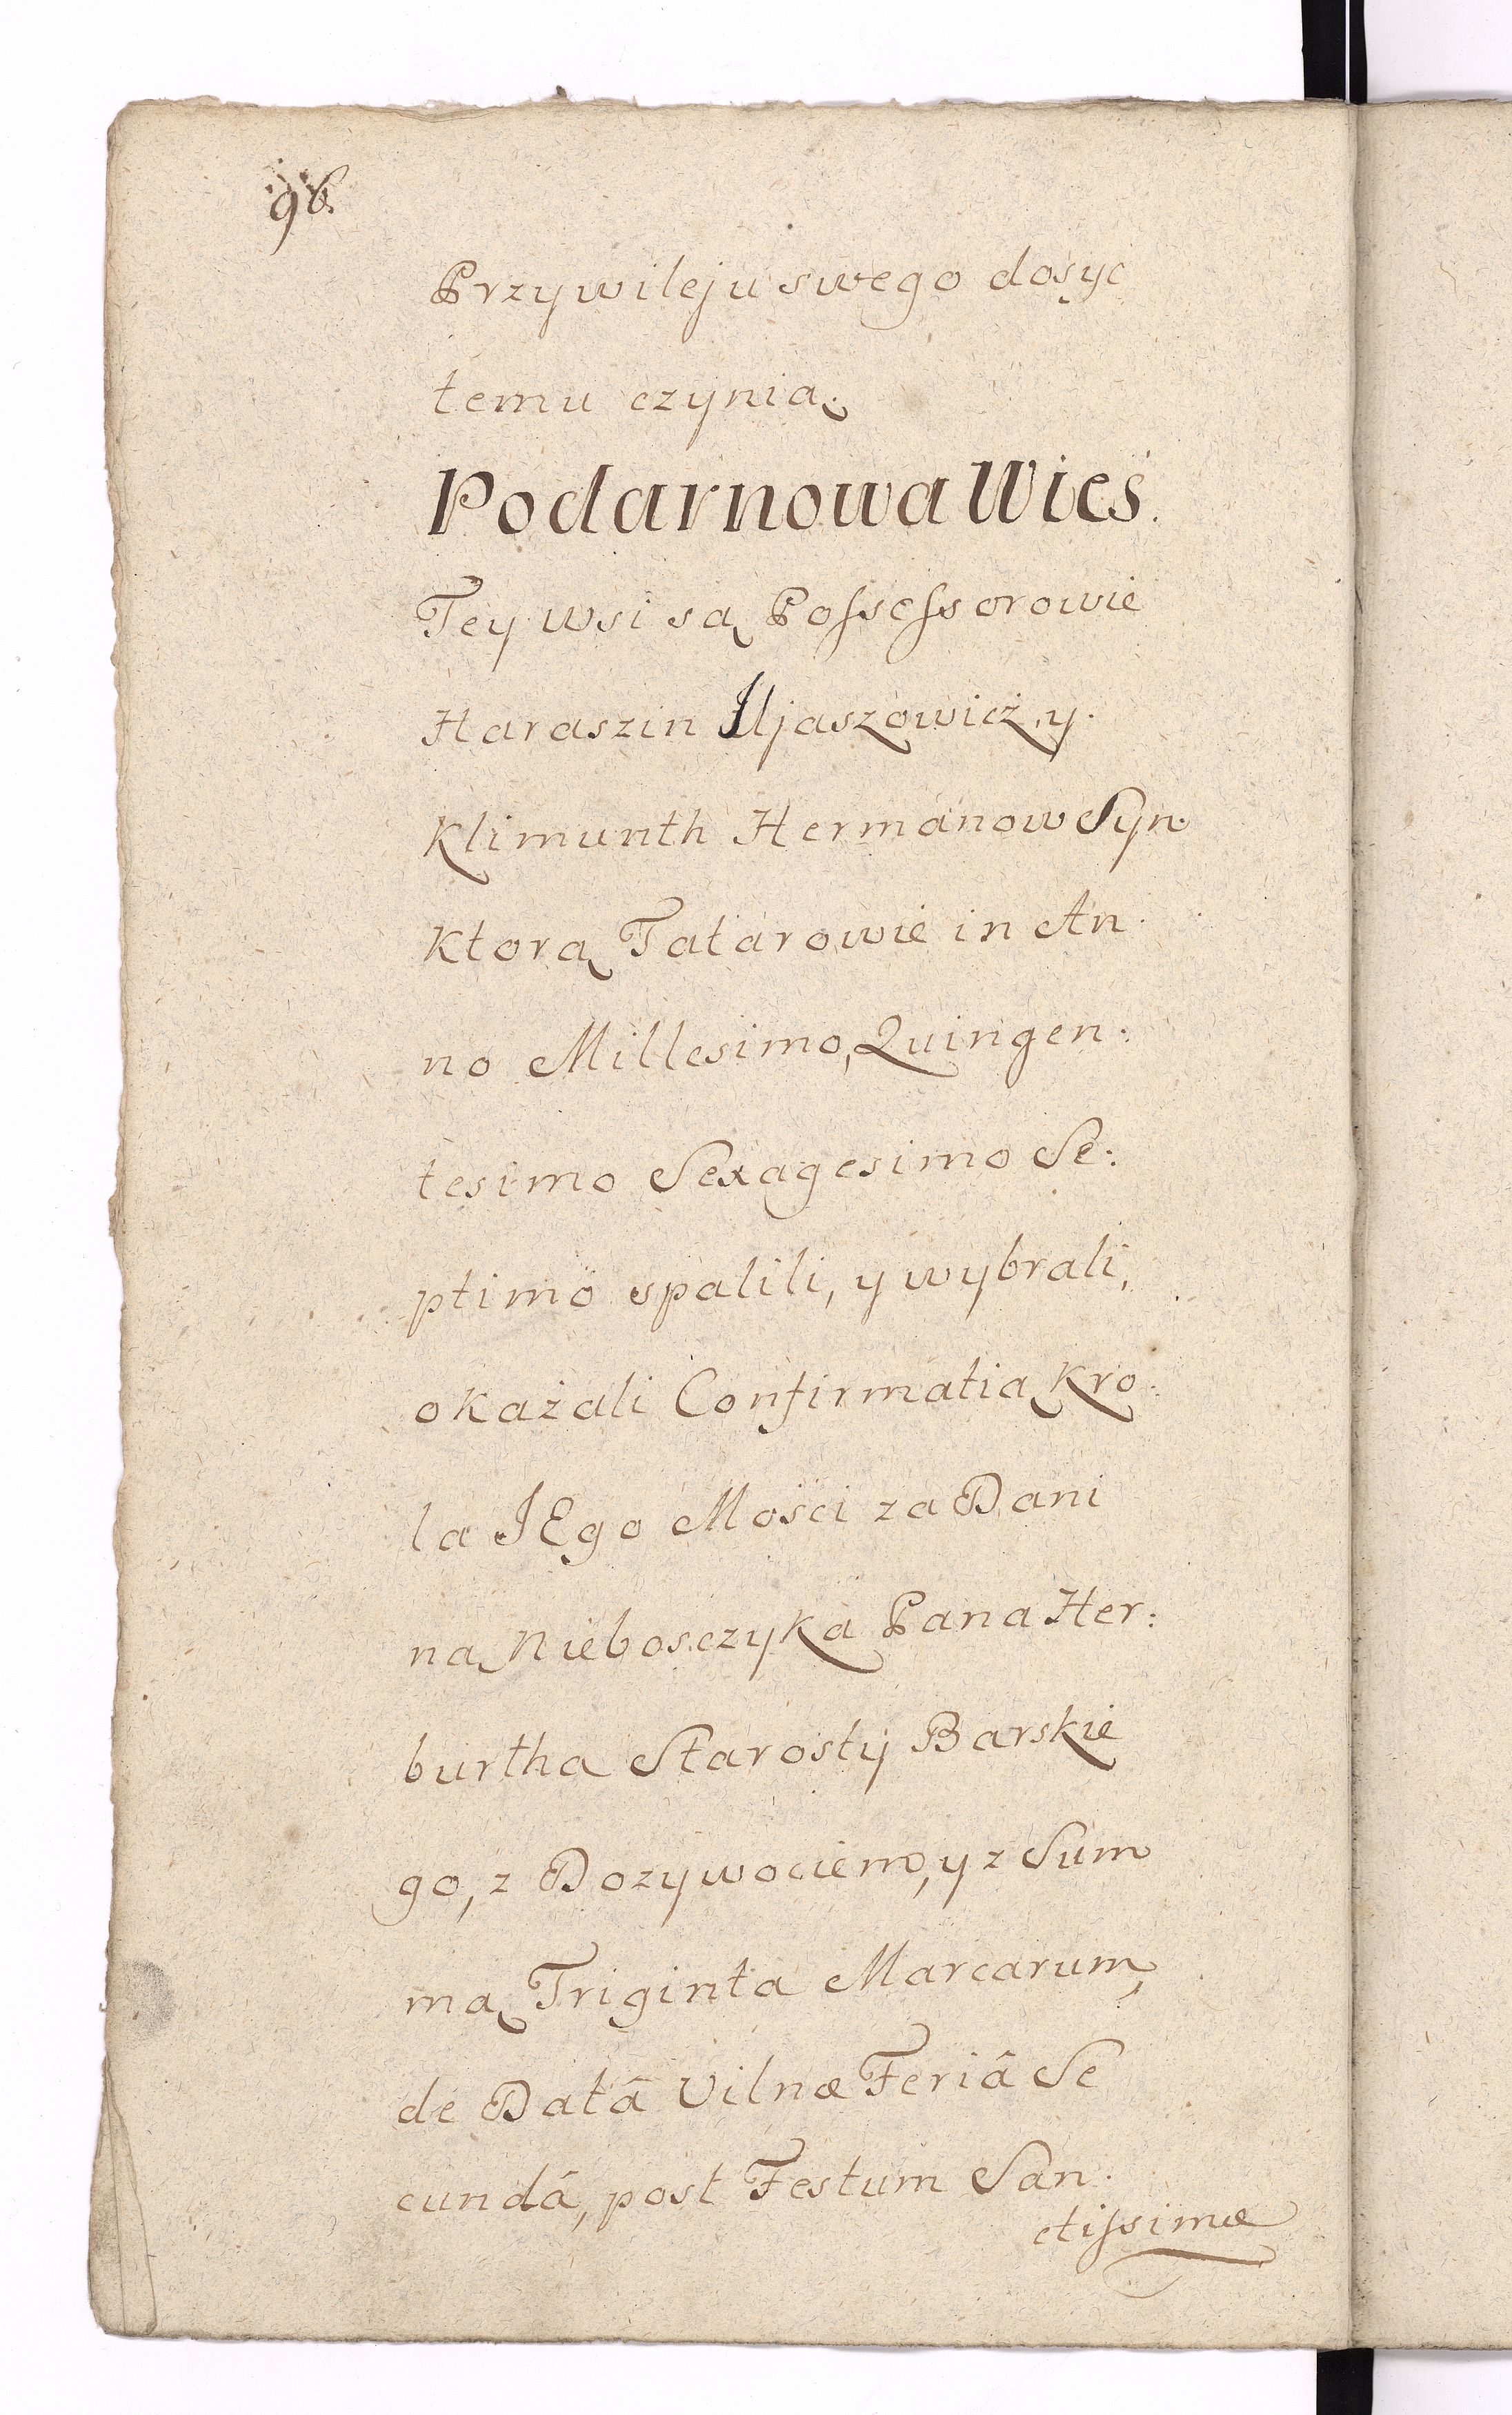 96.
Przywileju swego dosyc
temu czynią.
Podarnowa Wieś.
Tey wsi są Possessorowie
Haraszin Iljaszowicz, y
Klimunth Hermanow Syn
Ktorą Tatarowie in An:
no Millesimo, Quingen:
tesimo Sexagesimo Se:
ptimo spalili, y wybrali,
okazali Confirmatią Kro:
la JEgo Mości za Dani
ną Nieboszczyka Pana Her:
burtha Starosty Barskie
go, z Dozywociem, y z Sum
mą Triginta Marcarum,
de Datâ Vilnæ Feriâ Se
cundâ, post Festum San:
ctissimæ